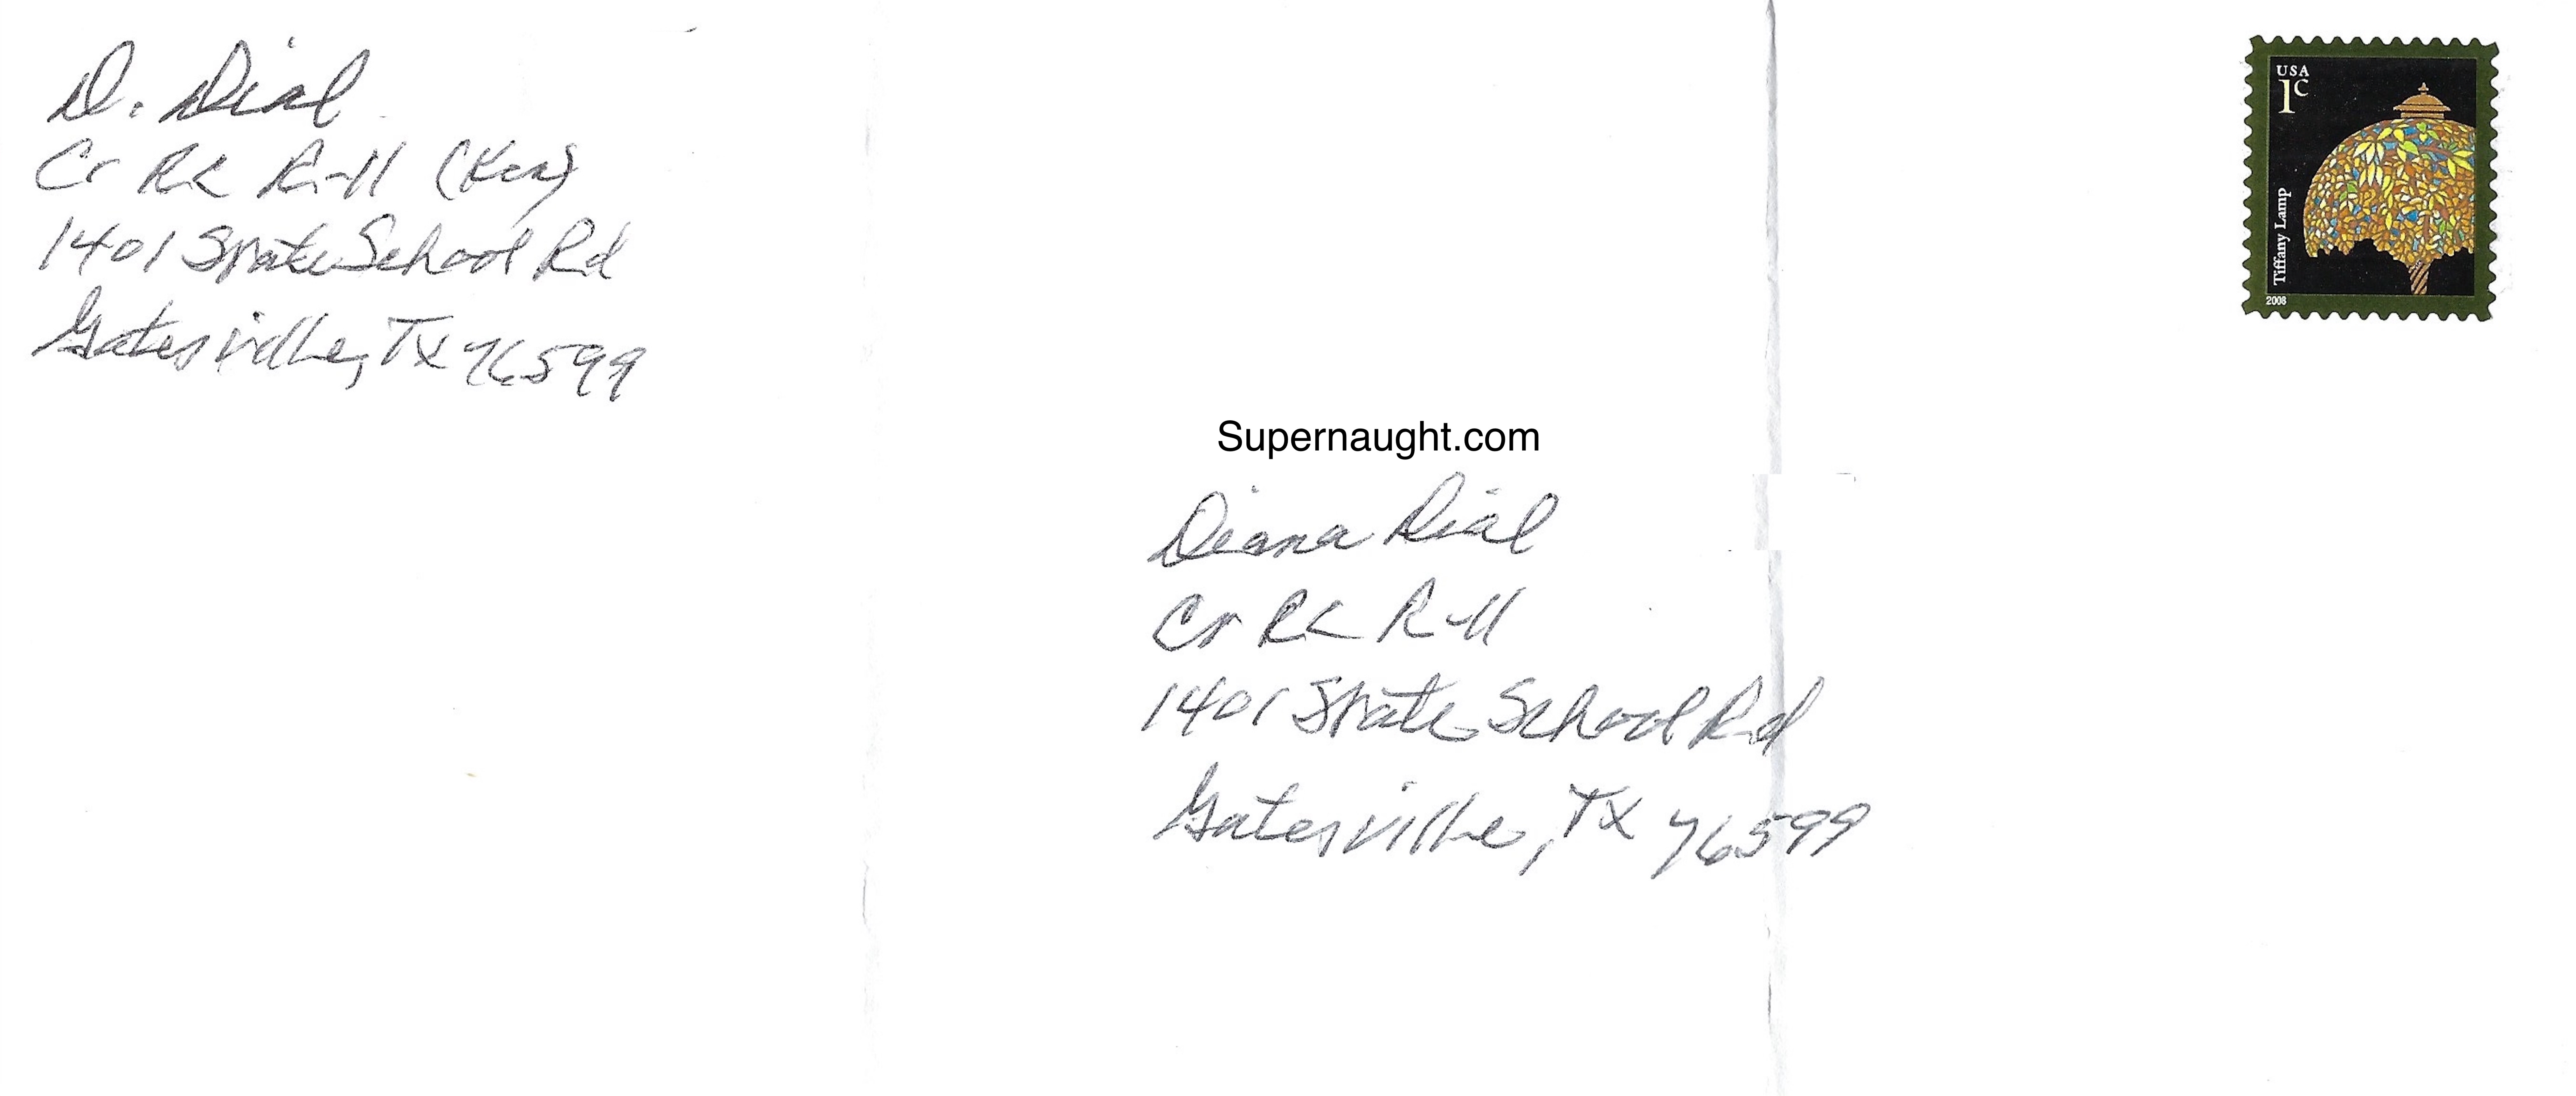 D. Dial
Cr RL R-11 (Ken)
1401 State School Rd
Gatesville, TX 76599
USA
1c
Tiffany Lamp
2008
Supernaught.com
Diana Dial
Cr RL R-11
1401 State School Rd
Gatesville, TX 76599